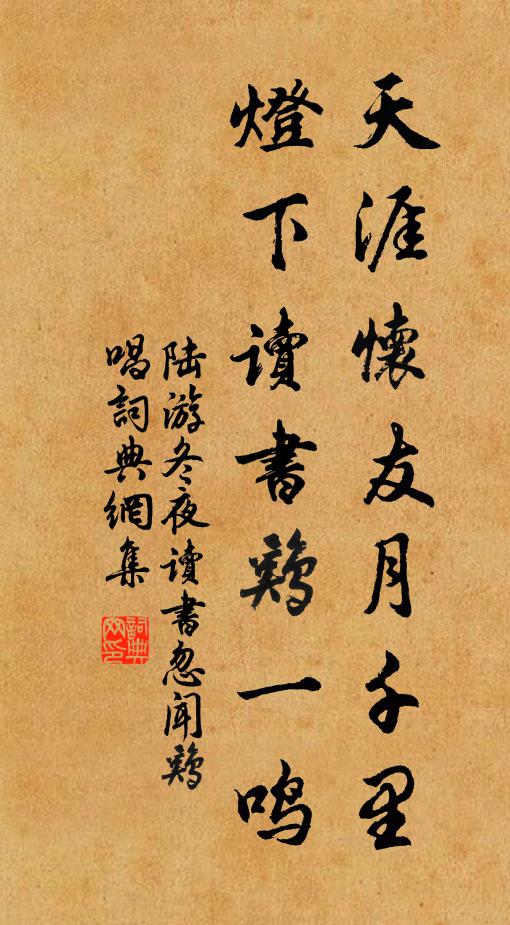 天涯懷友月千里
燈下讀書鷄一鳴
陆游冬夜讀書忽聞鷄
唱詞典網集
詞典网印